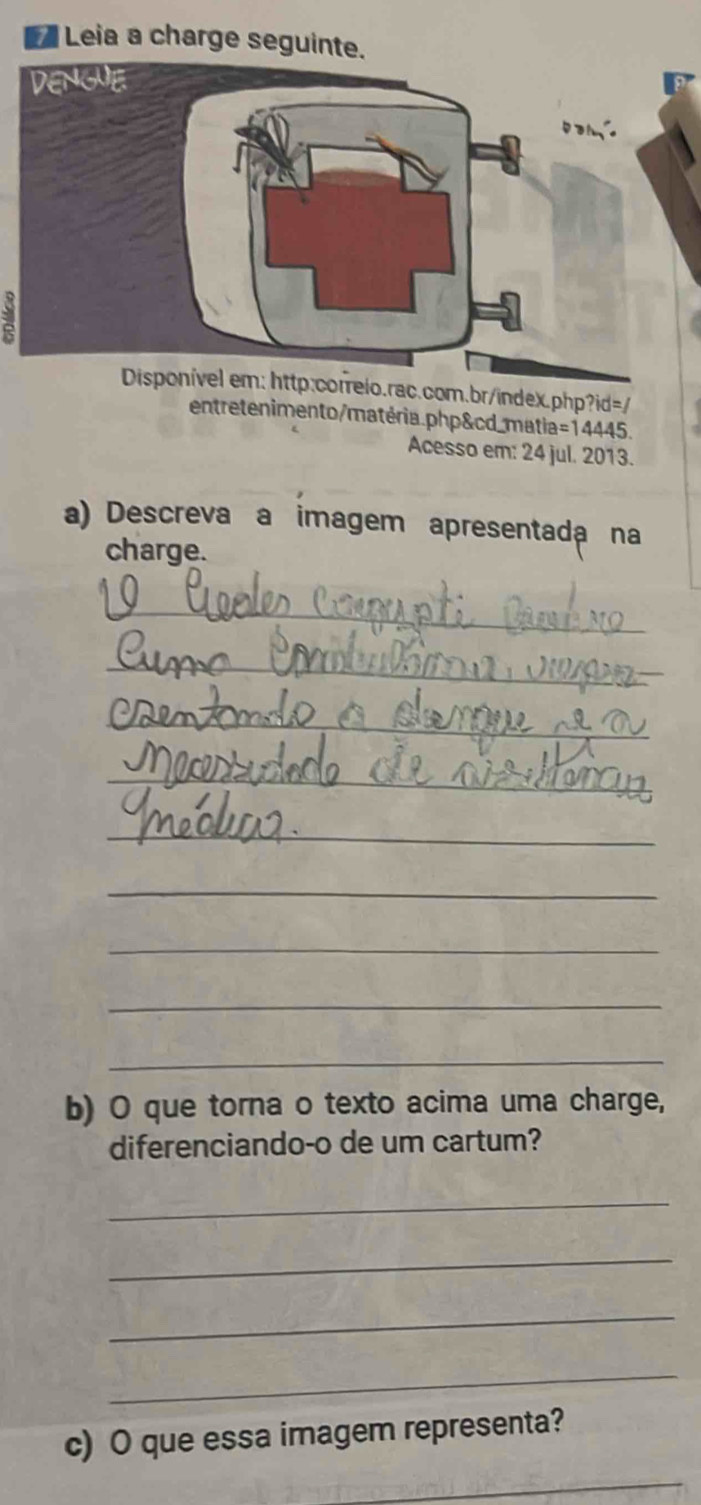 7 Leia a charge seguinte.
DENGUE
©Dálcio
Disponível em: http:correio.rac.com.br/index.php?id=/
entretenimento/matéria.php&cd_matia=14445.
Acesso em: 24 jul. 2013.
a) Descreva a imagem apresentada na
charge.
O
a dengue e a
necessidade de
médica.
b) O que torna o texto acima uma charge,
diferenciando-o de um cartum?
c) O que essa imagem representa?